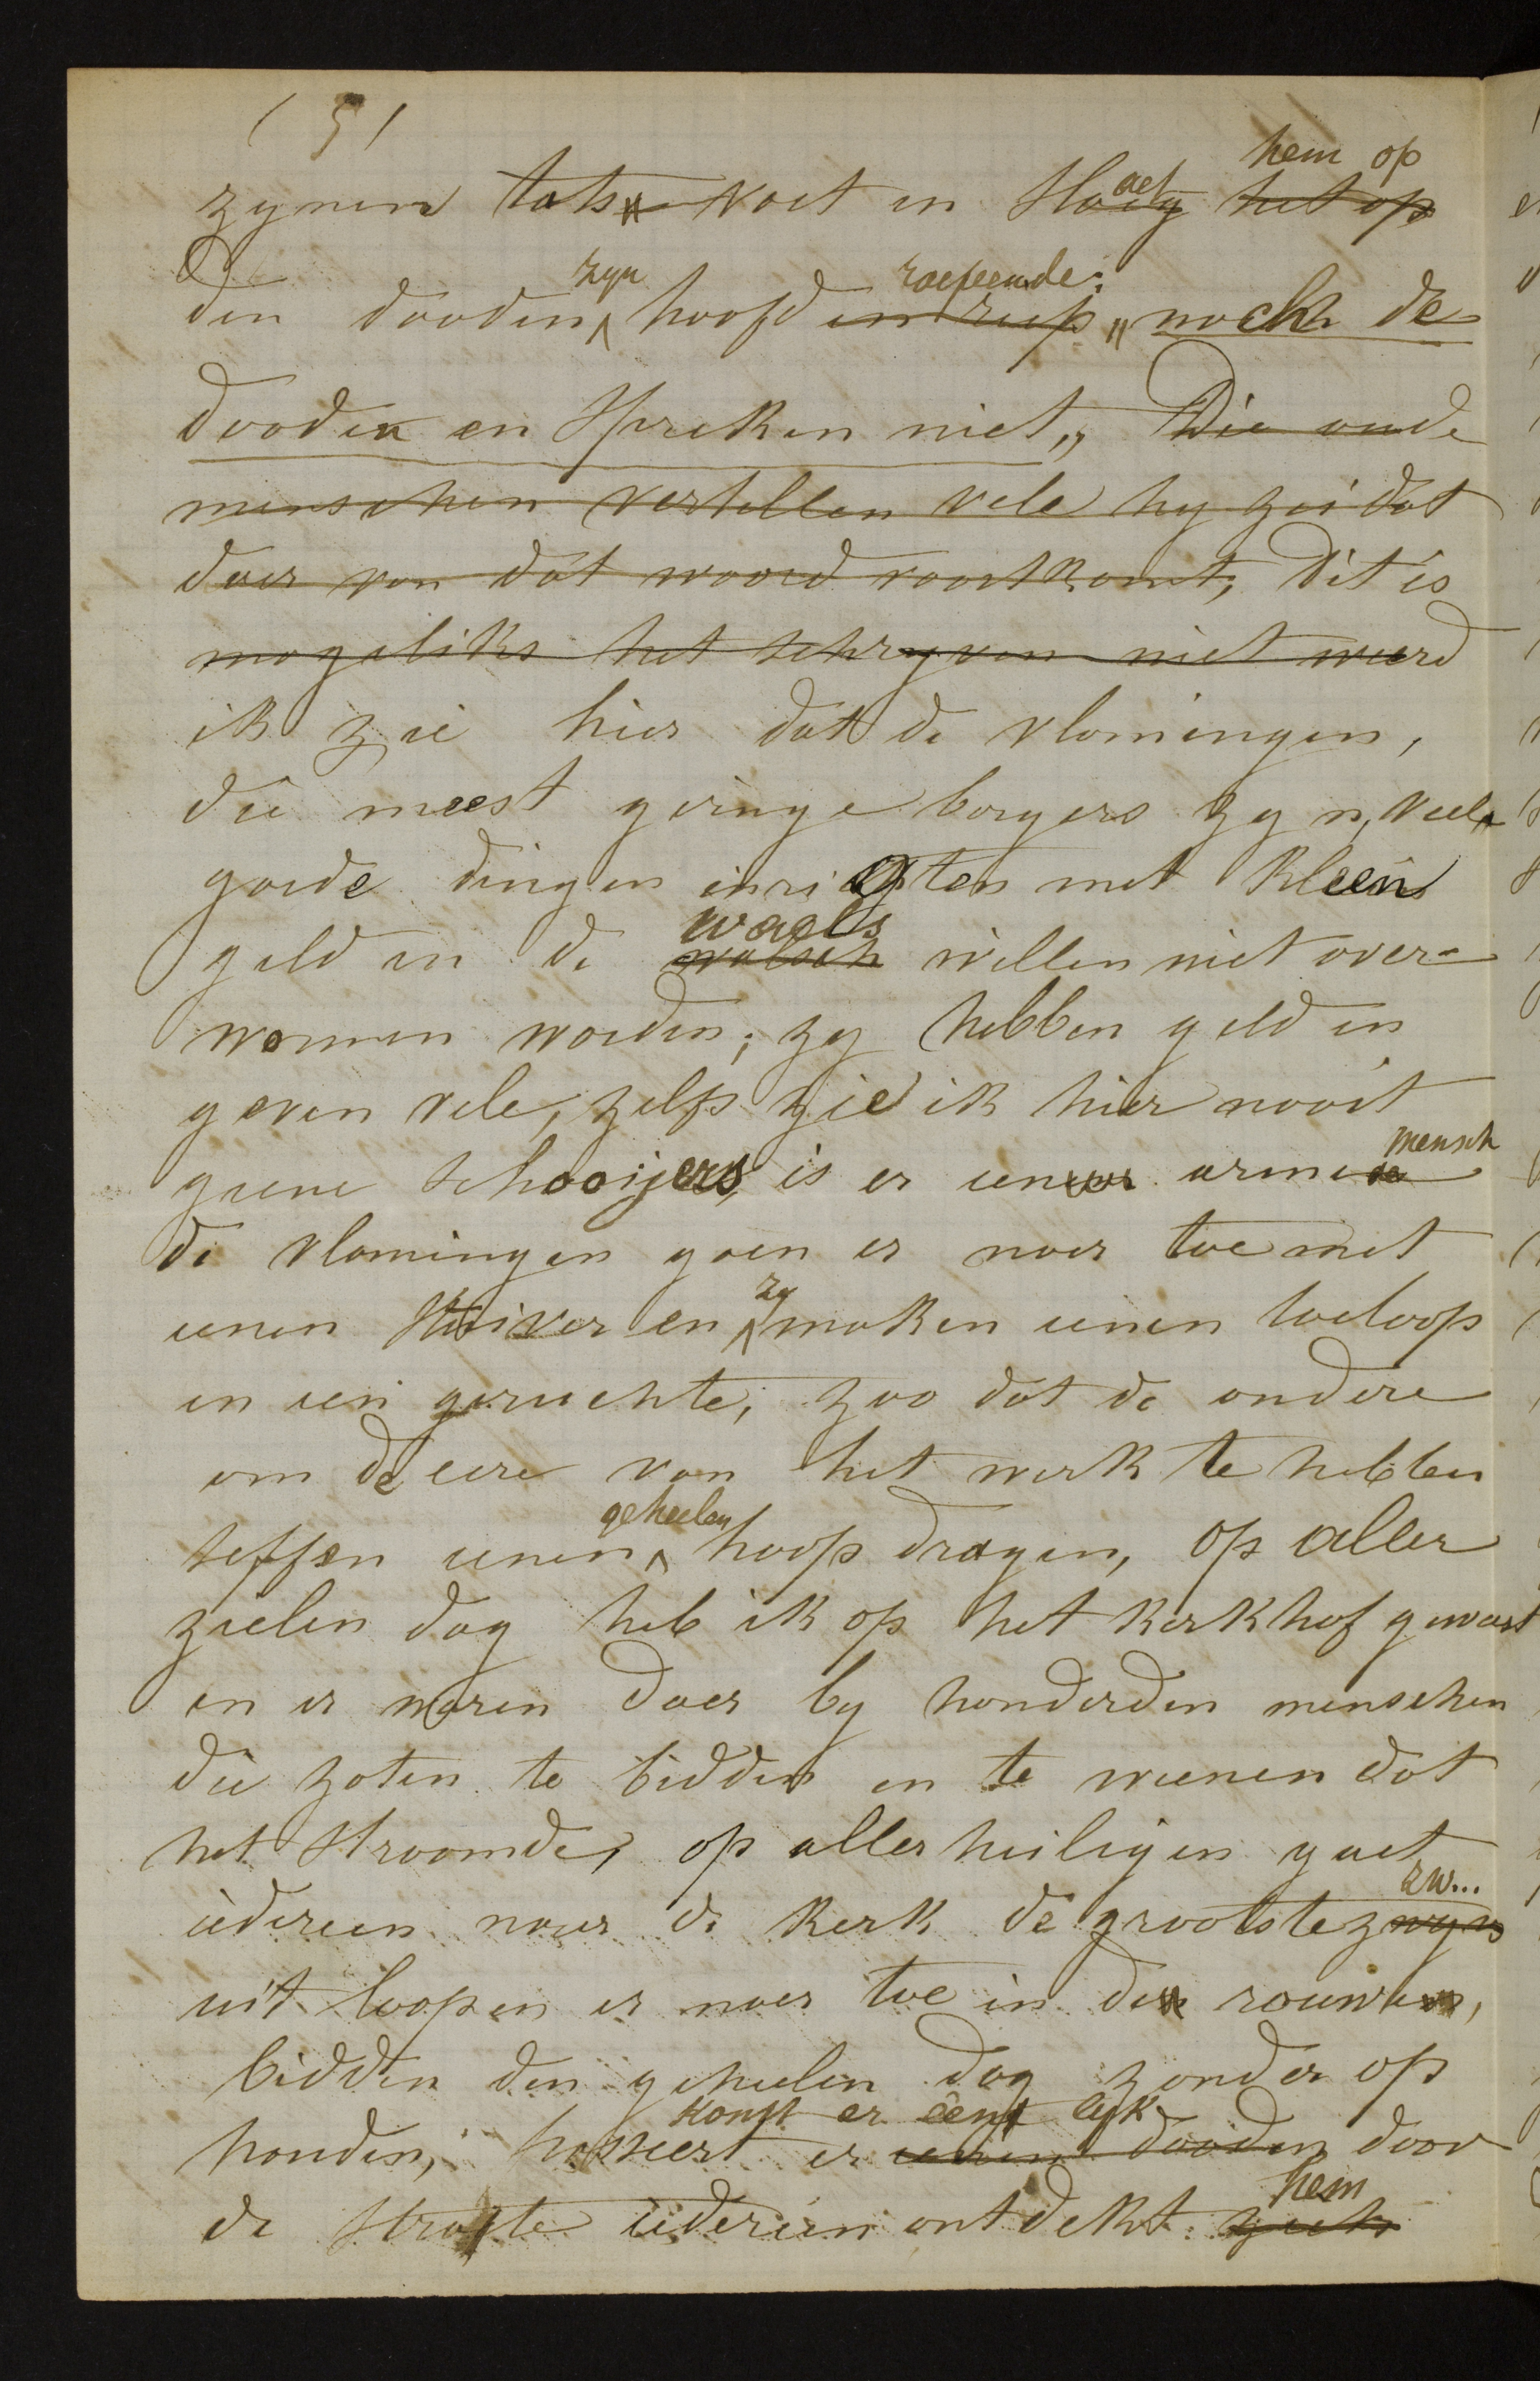 (5)
zynen tats voet en Slaet hem op
den dooden zyn hoofd en riep roepende: „noch de
dooden en spreken niet„ Die oude
menschen vertellen vele hy zei dat
daer van dat woord voortkomt, dit is
mogeliks het schryven niet weerd
ik zie hier dat de vlamingen,
die meest geringe borgers zyn, veele
goede dingen inrigten met kleen
geld en de walsch waels willen niet over-
wonnen worden; zy hebben geld en
geven vele, zelfs zie ik hier nooit
geene schooijers, is er eenen arme mensch
de vlamingen gaen er naer toe met
eenen stuiver en zy maken eenen toeloop
en een geruchte, zoo dat de andere
om de eere van het werk te hebben
seffen eenen geheelen hoop dragen, op aller
zielen dag heb ik op het kerkhof geweest
en er waren daer by honderden menschen
die zaten te bidden en te weenen dat
het stroomde, op allerheiligen gaet
iedereen naer de kerk de grootste zwyns zw...
uit loopen er naer toe in de rouwe,
bidden den geheelen dag zonder op
houden, passeert er eenen dooden komt er eene lyk door
de straete iedereen ontdekt zich hem